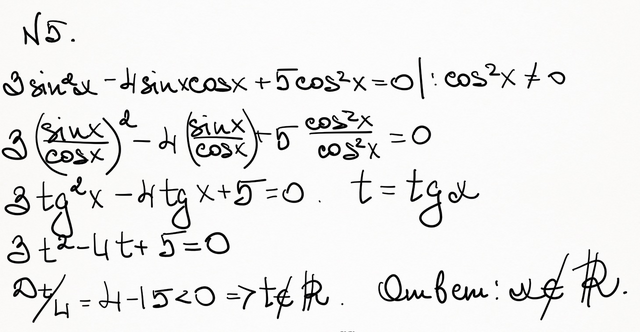 N5.
3 sin²x - 4 sinxcosx + 5cos²x = 0 | : cos²x ≠ 0
3 (sinx/cosx)² - 4 (sinx/cosx) + 5 cos²x/cos²x = 0
3 tg²x - 4 tg x + 5 = 0. t = tgx
3t² - 4t + 5 = 0
Dt/4 = 4 - 15 < 0 => t ∉ R. Ответ: x ∉ R.